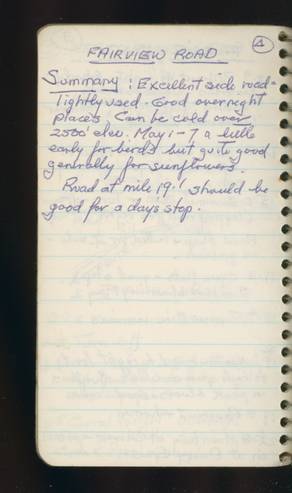 4
FAIRVIEW ROAD
Summary : Excellent side road -
lightly used. Good overnight
places. Can be cold over
2500' elev. May 1-7 a little
early for birds but quite good
generally for sunflowers.
Road at mile 19. should be
good for a days stop.